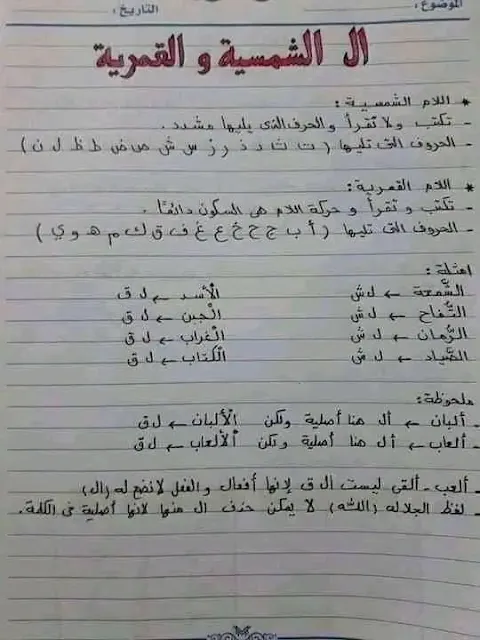 الموضوع: التاريخ:
ال الشمسية و القمرية
* اللام الشمسية:
- تكتب ولا تقرأ والحرف الذى يليها مشدد.
- الحروف التى تليها (ت ث د ذ ر ز س ش ص ض ط ظ ل ن)
* اللام القمرية:
- تكتب و تقرأ و حركة اللام هى السكون دائمًا.
- الحروف التى تليها (أ ب ج ح خ ع غ ف ق ك م هـ و ي)
امثلة:
الشَّمعة ← ل ش الْأسد ← ل ق
التُّفاح ← ل ش الْجبن ← ل ق
الرُّمان ← ل ش الْغراب ← ل ق
الصَّياد ← ل ش الْكتاب ← ل ق
ملحوظة:
- ألبان ← أل هنا أصلية ولكن الْألبان ← ل ق
- ألعاب ← أل هنا أصلية ولكن الْألعاب ← ل ق
- ألعب - ألقى ليست ال ق لإنها أفعال والفعل لا نضع له (ال)
- لفظ الجلاله (الله) لا يمكن حذف ال منها لانها أصلية فى الكلمة.